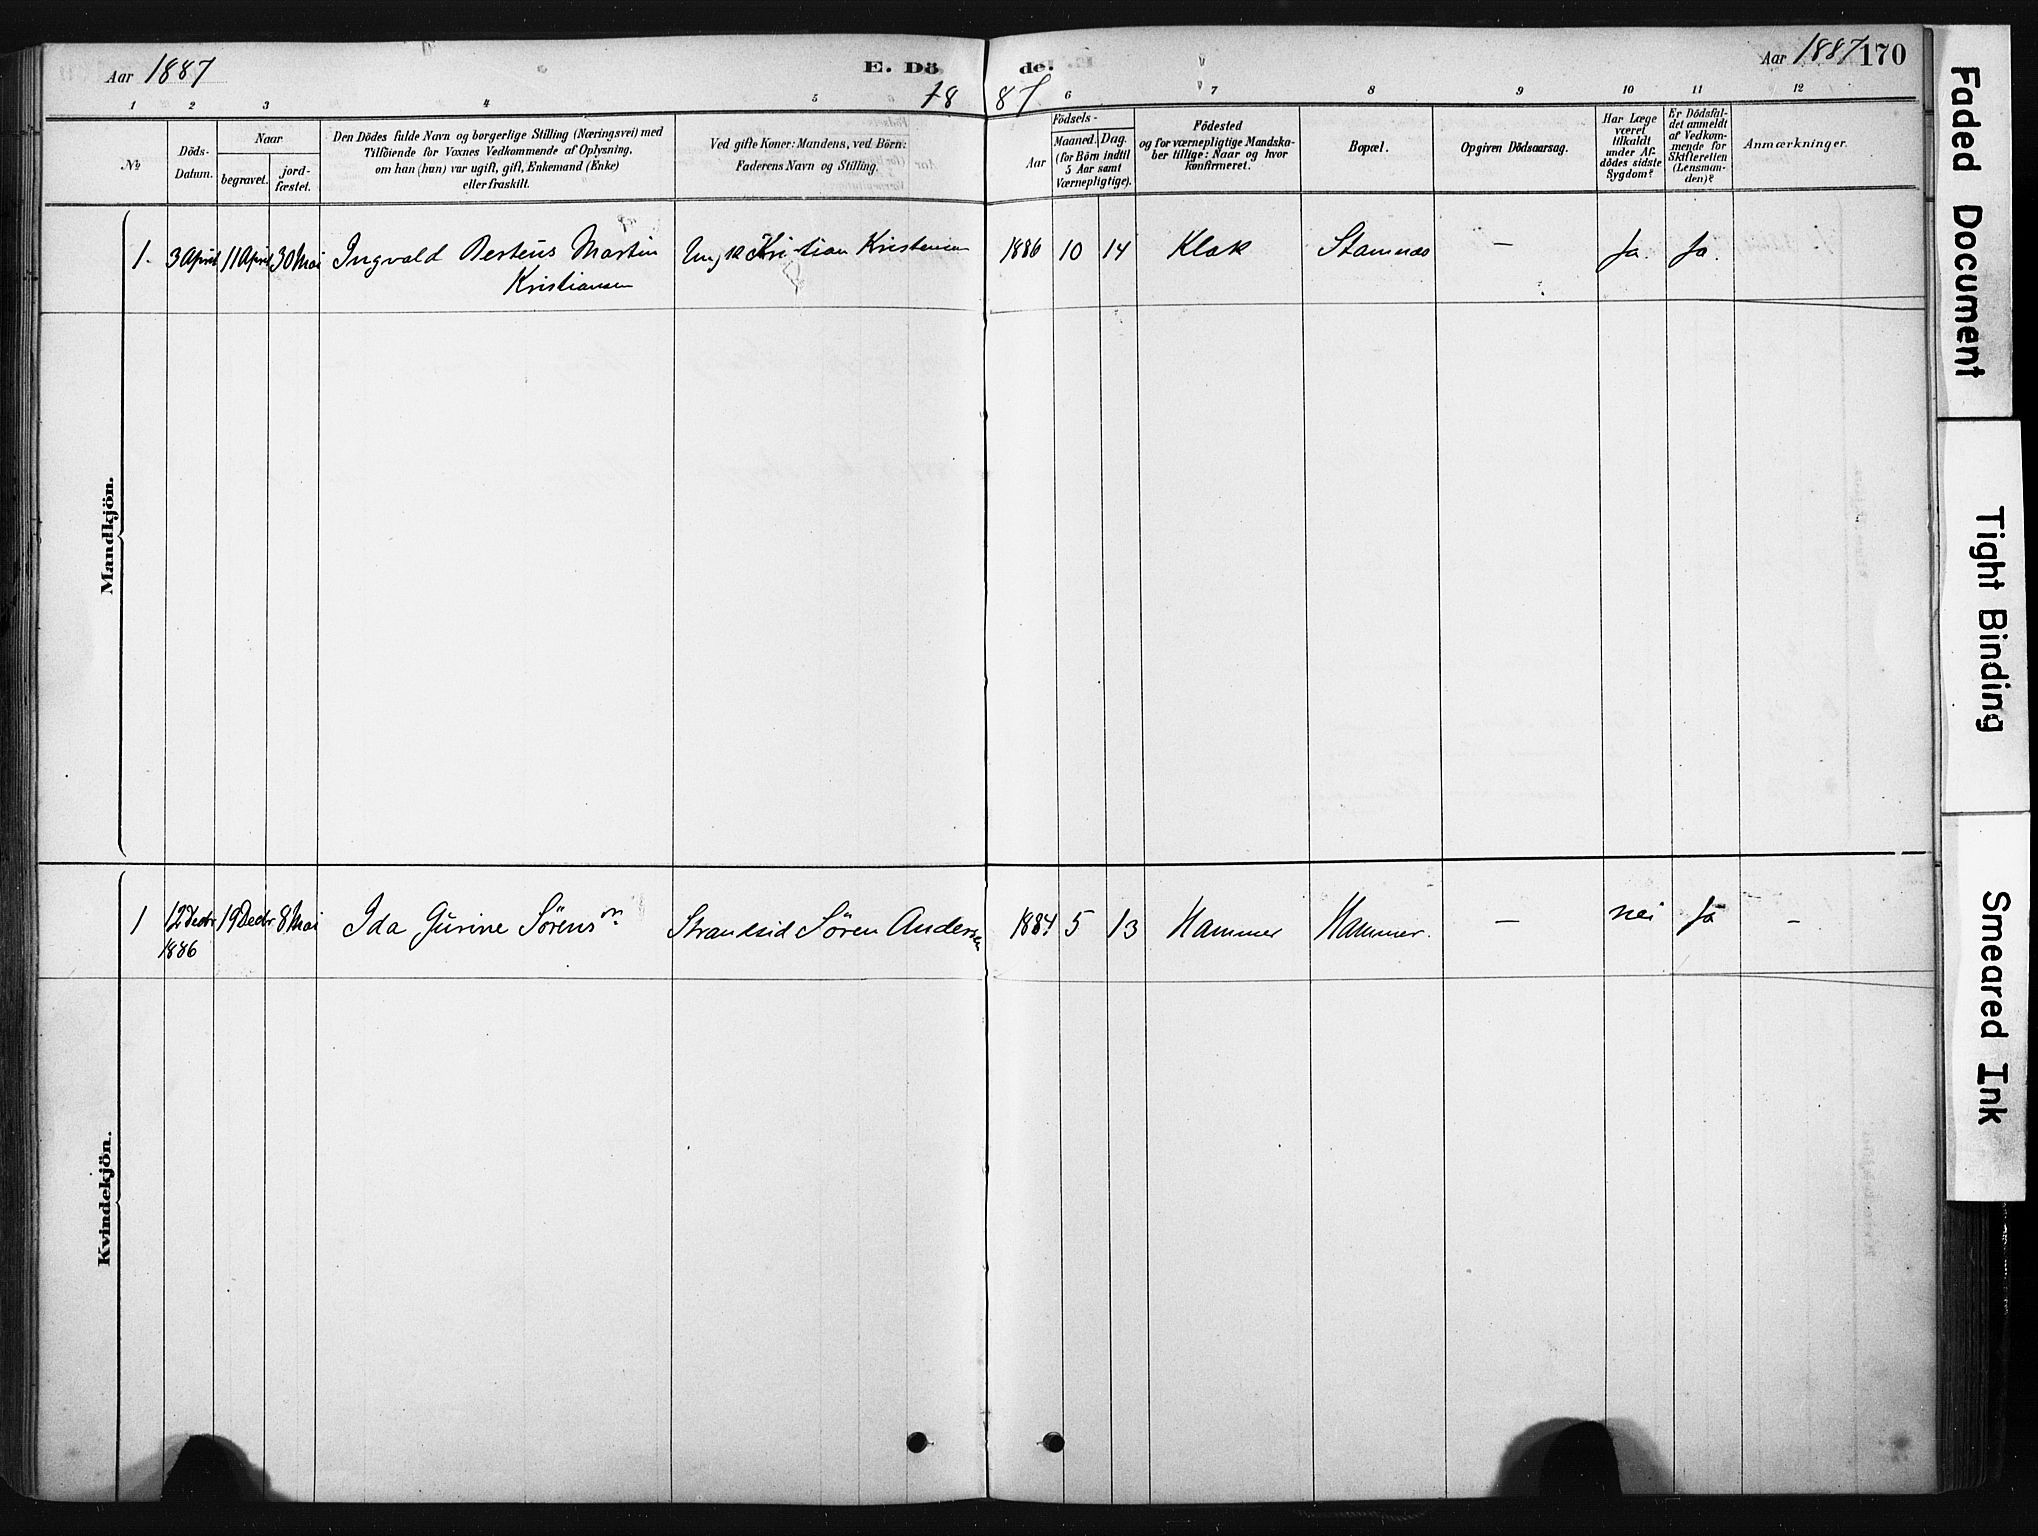 Aar 1887
E. Dö
de.
Aar 1887
170
18
87
1
2
3
4
5
6
7
8
9
10
11
12
No
Döds-
Datum.
Naar
begravet.
jord-
fæstet.
Den Dödes fulde Navn og borgerlige Stilling (Næringsvei) med
Tilföiende for Voxnes Vedkommende af Oplysning,
om han (hun) var ugift, gift, Enkemand (Enke)
eller fraskilt.
Ved gifte Koner: Mandens, ved Börn:
Faderens Navn og Stilling.
Födsels-
Aar
Maaned.
Dag.
(for Börn indtil
5 Aar samt
Værnepligtige).
Födested
og for værnepligtige Mandska-
ber tillige: Naar og hvor
konfirmeret.
Bopæl.
Opgiven Dödsaarsag.
Har Læge
været
tilkaldt
under Af-
dödes sidste
Sygdom?
Er Dödsfal-
det anmeldt
af Vedkom-
mende for
Skifteretten
(Lensman-
den)?
Anmærkninger.
Mandkjön.
1. 3 April 11 April 30 Mai Ingvald Berteus Martin Kristian Kristensen 1886 10 14 Klak Stamnæs — Ja. Ja.
Kristiansen
Kvindekjön.
1 12 Decbr 19 Decbr 8 Mai Ida Gurine Sörensn Strandsid Sören Andersen 1884 5 13 Hammer Hammer. — nei Ja —
1886
Faded Document
Tight Binding
Smeared Ink